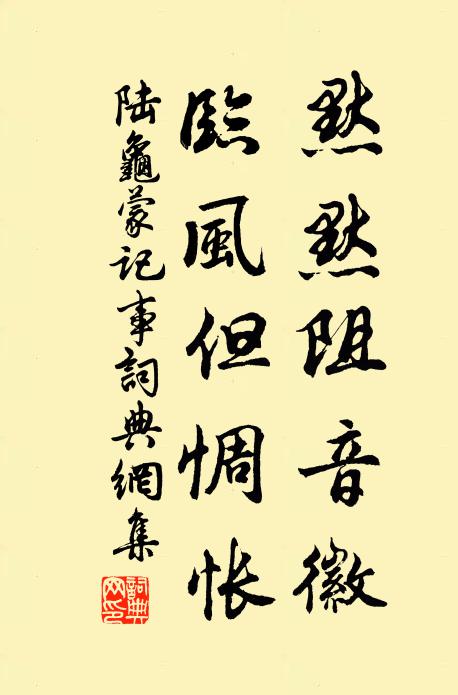 默默阻音徽
臨風但惆悵
陸龜蒙記事詞典網集
詞典網印